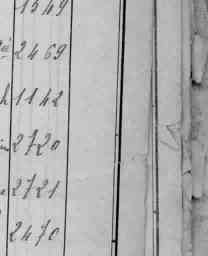 1549
2469
h 1142
2720
2721
2470